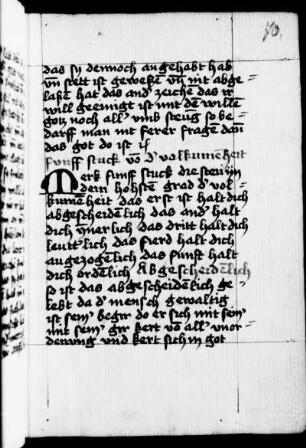 70.
das sÿ dennoch angehabt hab
vn̄ stett ist geweßē vn̄ nit abge
laßē hat das and' zeichē das ir
will geeinigt ist mit dē willē
gotz noch all' vmb steūg so be
darff man nit ferer fragē dan̄
das got do ist ⁊c
funff stuck vō d' volkumēheit
Merk funff stuck die stēn in
dem hohstē grad d' vol
kumēheit das erst ist halt dich
abgescheidēlich das and' halt
dich ynerlich das dritt halt dich
leutt'lich das fierd halt dich
angezogēlich das funft halt
dich ordēlich Abgescheidēlich
so ist das abgescheidēlich ge
lebt da d' mensch gewaltig
ist sem' begir do er sich mit sem'
mit sem' gir kert vō all' vnor
denung vnd kert sich in got